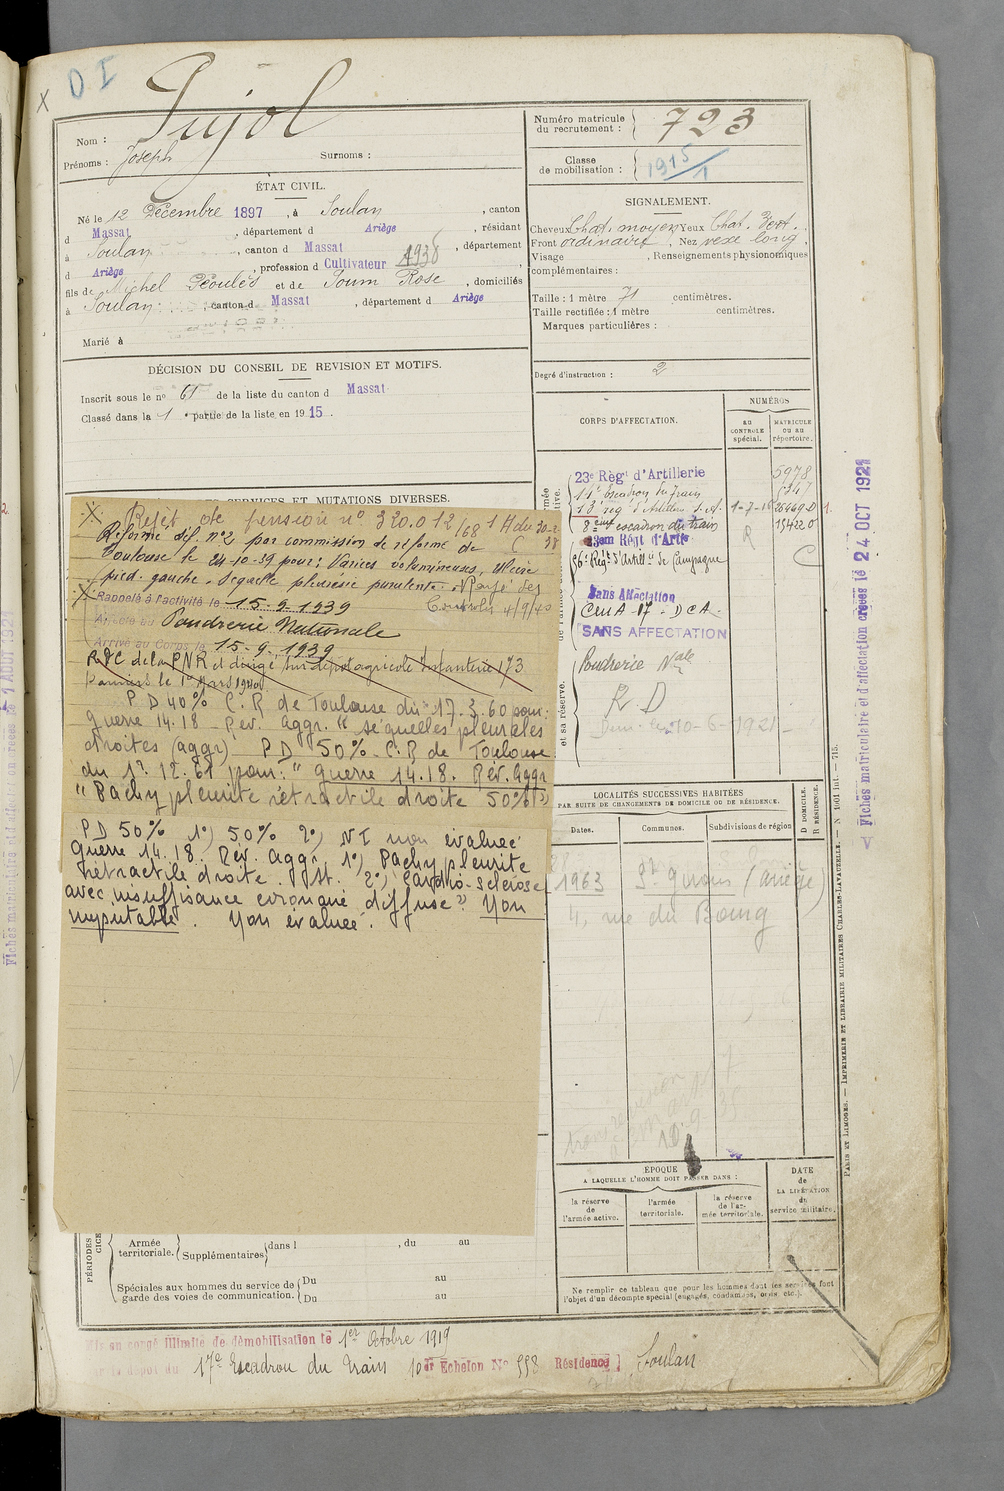 X D I
Nom : Pujol
Prénoms : Joseph Surnoms :
ÉTAT CIVIL.
Né le 12 Décembre 1897, à Soulan, canton
d Massat, département d Ariège, résidant
à Soulan, canton d Massat, département
d Ariège, profession d Cultivateur 1938
fils de Michel Géoulés et de Soum Rose, domiciliés
à Soulan, canton d Massat, département d Ariège
Marié à
DÉCISION DU CONSEIL DE REVISION ET MOTIFS.
Inscrit sous le no 65 de la liste du canton d Massat
Classé dans la 1 partie de la liste en 1915.
SERVICES ET MUTATIONS DIVERSES.
Rejet de pension no 320.012/68
Réformé déf. no 2 par commission de réforme de
Toulouse le 24-10-39 pour : Varices volumineuses, Ulcère
pied gauche. Séquelle pleurésie purulente. Rayé des
Contrôles 4/9/40
Rappelé à l'activité le 15-9-1939
Affecté au Poudrerie Nationale
Arrivé au Corps le 15-9-1939
RVC de la PNR et dirigé sur dépôt agricole Infanterie 173
Pamiers le 1er Mars 1940
P D 40% C.R de Toulouse du 17.3.60 pour :
guerre 14.18 - Rev. Aggr. " séquelles pleurales
droites (aggr) - P D 50% - C.R de Toulouse
du 1?.12.61 pour : " guerre 14.18. Rev. Aggr
" Pachypleurite rétractile droite 50% "
PD 50% 1°) 50% 2°) NI non évaluée
guerre 14.18. Rev. Aggr. 1°) Pachypleurite
rétractile droite. 2°) Cardio-sclérose
avec insuffisance coronarienne diffuse " Non
imputable. Non évaluée.
PÉRIODES
Armée territoriale. Supplémentaires dans l , du au
Spéciales aux hommes du service de garde des voies de communication. Du au
Du au
Mis en congé illimité de démobilisation le 1er Octobre 1919
par le dépôt du 17e Escadron du Train 10er Échelon No 558 Résidence Soulan
Numéro matricule du recrutement : 723
Classe de mobilisation : 1915/1
SIGNALEMENT.
Cheveux Chat. moyen Yeux Chat. Vert.
Front ordinaire, Nez vexe long,
Visage , Renseignements physionomiques
complémentaires :
Taille : 1 mètre 71 centimètres.
Taille rectifiée : 1 mètre centimètres.
Marques particulières :
Degré d'instruction : 2
CORPS D'AFFECTATION.
NUMÉROS
au CONTROLE spécial.
MATRICULE ou au répertoire.
23e Régt d'Artillerie 5978
11e Escadron du train 7347
13e rég d'Artillerie 1-7-16
8eme escadron du train 15422 R
23em Regt d'Artie
56e Régt d'Artillie de Campagne C
Sans Affectation
CMA 17 - DCA -
SANS AFFECTATION
et sa réserve.
Poudrerie Nale
R D
10-6-1921
LOCALITÉS SUCCESSIVES HABITÉES
PAR SUITE DE CHANGEMENTS DE DOMICILE OU DE RÉSIDENCE.
Dates. Communes. Subdivisions de région
D DOMICILE. R RÉSIDENCE.
1963 St Girons (Ariège)
4, rue du Bourg
ÉPOQUE
A LAQUELLE L'HOMME DOIT PASSER DANS :
la réserve de l'armée active.
l'armée territoriale.
la réserve de l'armée territoriale.
DATE de LA LIBÉRATION du service militaire.
Ne remplir ce tableau que pour les hommes dont les services font
l'objet d'un décompte spécial (engagés, condamnés, omis, etc.).
PARIS ET LIMOGES. — IMPRIMERIE ET LIBRAIRIE MILITAIRES CHARLES-LAVAUZELLE. — N 1001 int. — 715.
Fiches matriculaire et d'affectation créées le 24 OCT 1921
Fiches matriculaire et d'affectation créées le 1 AOUT 1921